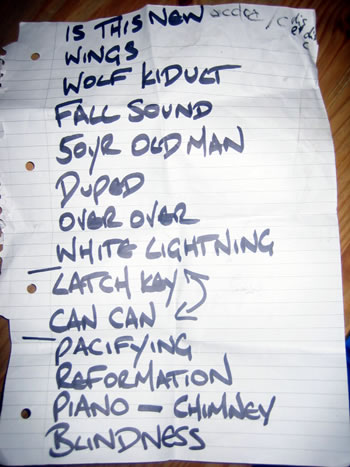 IS THIS NEW
WINGS
WOLF KIDULT
FALL SOUND
50YR OLD MAN
DUPED
OVER OVER
WHITE LIGHTNING
LATCH KEY
CAN CAN
PACIFYING
REFORMATION
PIANO — CHIMNEY
BLINDNESS